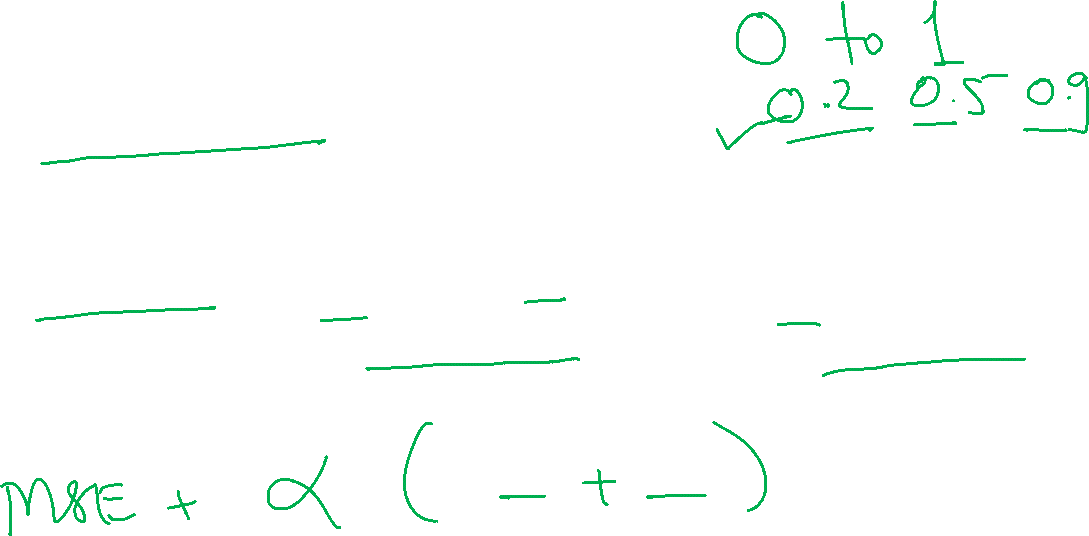 0 to 1
0.2 0.5 0.9
MSE + α ( _ + _ )